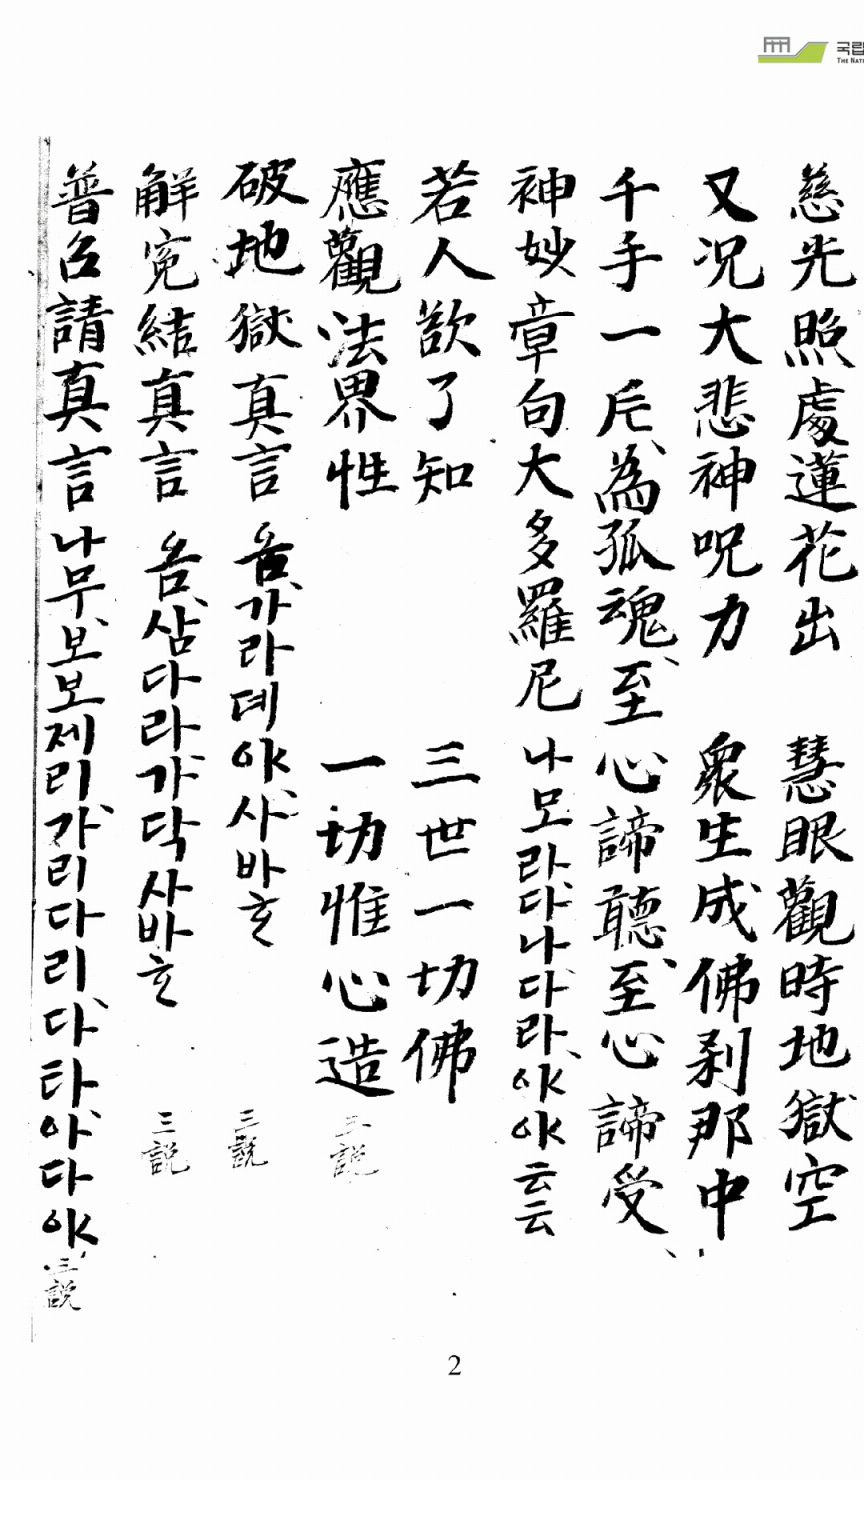 국립
THE NAT
慈光照處蓮花出 慧眼觀時地獄空
又况大悲神呪力 衆生成佛刹那中
千手一片爲孤魂至心諦聽至心諦受
神妙章句大多羅尼 나모라다나다라야야云云
若人欲了知 三世一切佛
應觀法界性 一切惟心造 三説
破地獄真言 옴가라뎨야사바흐 三説
解寃結真言 옴삼다라가닥사바흐 三説
普召請真言 나무보보제리가리다리다타아다야 三説
2